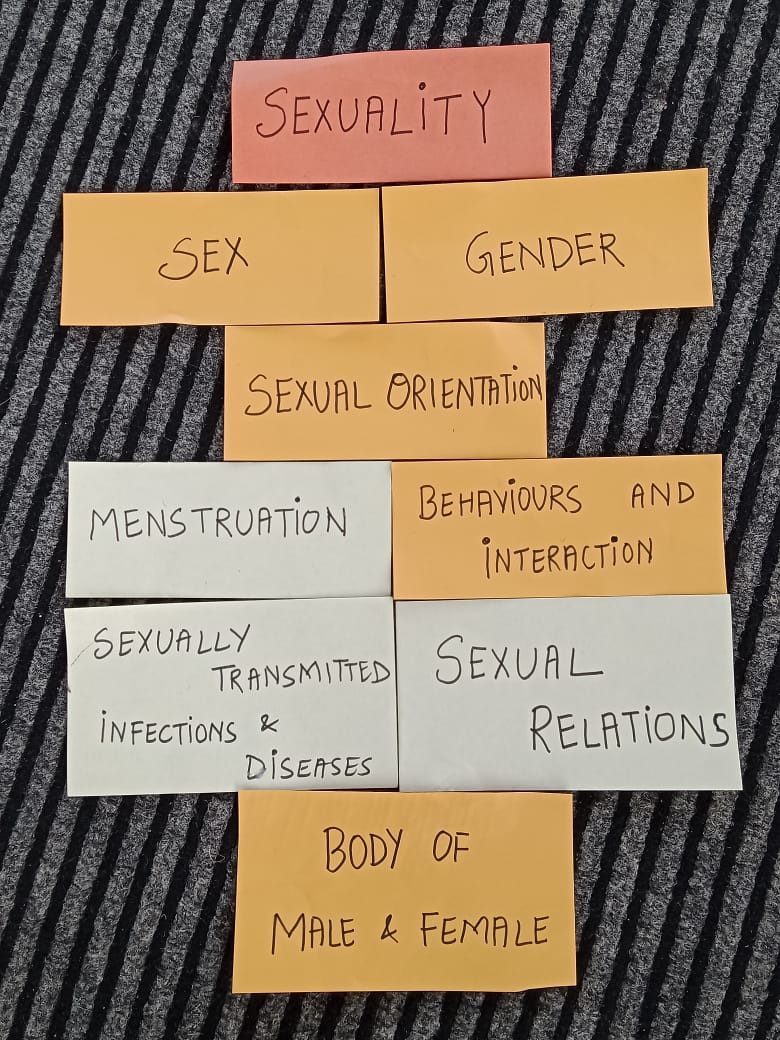 SEXUALITY
SEX
GENDER
SEXUAL ORIENTATION
MENSTRUATION
BEHAVIOURS AND
INTERACTION
SEXUALLY
TRANSMITTED
INFECTIONS &
DISEASES
SEXUAL
RELATIONS
BODY OF
MALE & FEMALE